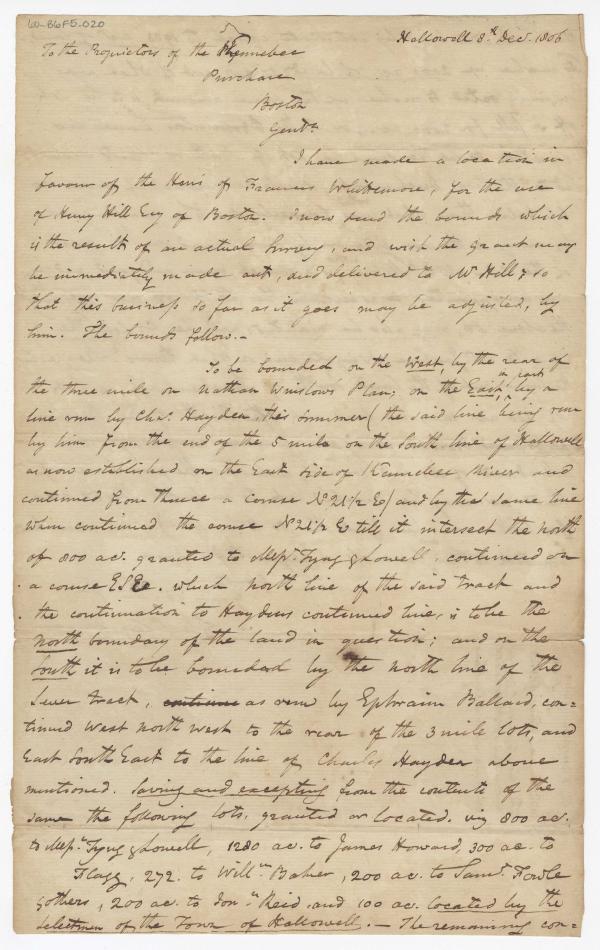 60-B6F5-020
Hallowell 8th Decr. 1806
To the Proprietors of the Kennebec
Purchase
Boston
Gentn
I have made a location in
favour of the Heirs of Francis Whittemore, for the use
of Henry Hill Esq of Boston. I now send the bounds which
is the result of an actual Survey, and wish the grant may
be immediately made out, and delivered to Mr Hill & so
that this business so far as it goes may be adjusted, by
him. The bounds follow.-
To be bounded on the West, by the rear of
the three mile on Nathan Winslow's Plan; on the East, in part by a
line run by Chas. Hayden, this summer (the said line being run
by him from the end of the 5 mile on the South line of Hallowell
as now established on the East side of Kennebec River and
continued from thence a course N 21 1/2 E) and by the same line
when continued the course N 21 1/2 E till it intersect the north
of 800 ac. granted to Messr. Tyng & Lowell, continued on
a course ESE. which north line of the said tract and
the continuation to Haydens continued line, is to be the
north boundary of the land in question; and on the
South it is to be bounded by the north line of the
Sewer tract, continue as run by Ephraim Ballard, con=
tinued West north west to the rear of the 3 mile lots, and
East South East to the line of Charles Hayden above
mentioned. Saving and excepting from the contents of the
same the following lots, granted or located. viz 800 ac.
to Messr. Tyng & Lowell, 1280 ac. to James Howard, 300 ac. to
Flagg, 272. to Willm Baker, 200 ac. to Saml. Fowle
& others, 200 ac. to Jonn Reid, and 100 ac. located by the
selectmen of the Town of Hallowell. - The remaining con=